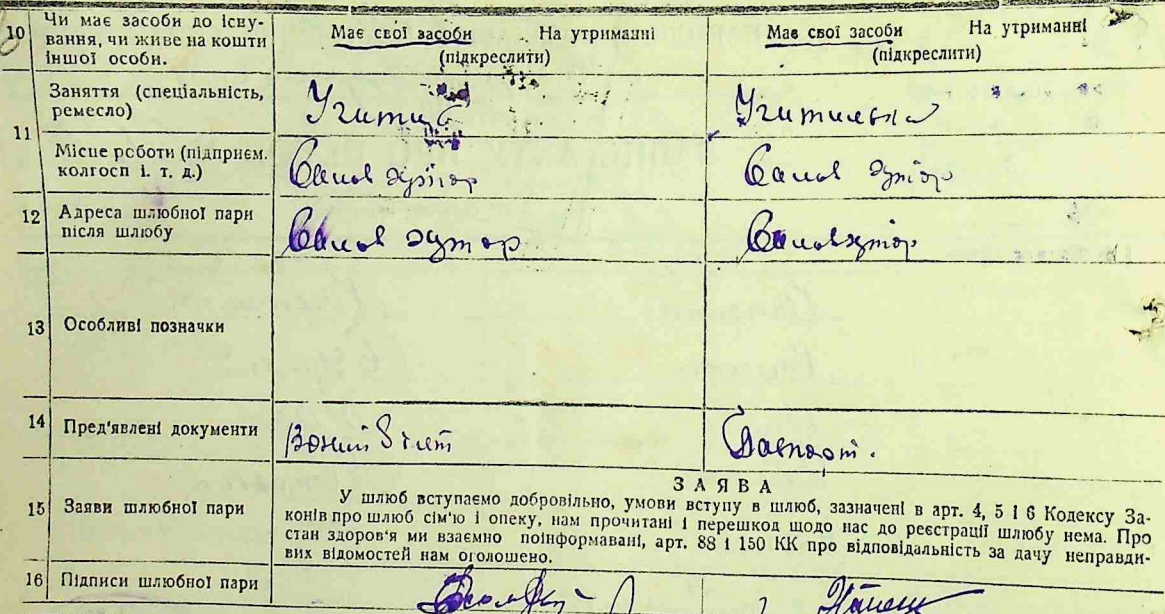 10 Чи має засоби до існу-
вання, чи живе на кошти
іншої особи.
Має свої засоби На утриманні
(підкреслити)
Має свої засоби На утриманні
(підкреслити)
11
Заняття (спеціальність,
ремесло)
Учитель
Учителька
Місце роботи (підприєм.
колгосп і. т. д.)
хутор
хутор
12 Адреса шлюбної пари
після шлюбу
хутор
хутор
13 Особливі позначки
14 Пред'явлені документи
білет
Паспорт.
15 Заяви шлюбної пари
ЗАЯВА
У шлюб вступаємо добровільно, умови вступу в шлюб, зазначені в арт. 4, 5 і 6 Кодексу За-
конів про шлюб сім'ю і опеку, нам прочитані і перешкод щодо нас до реєстрації шлюбу нема. Про
стан здоров'я ми взаємно поінформавані, арт. 88 і 150 КК про відповідальність за дачу неправди-
вих відомостей нам оголошено.
16 Підписи шлюбної пари